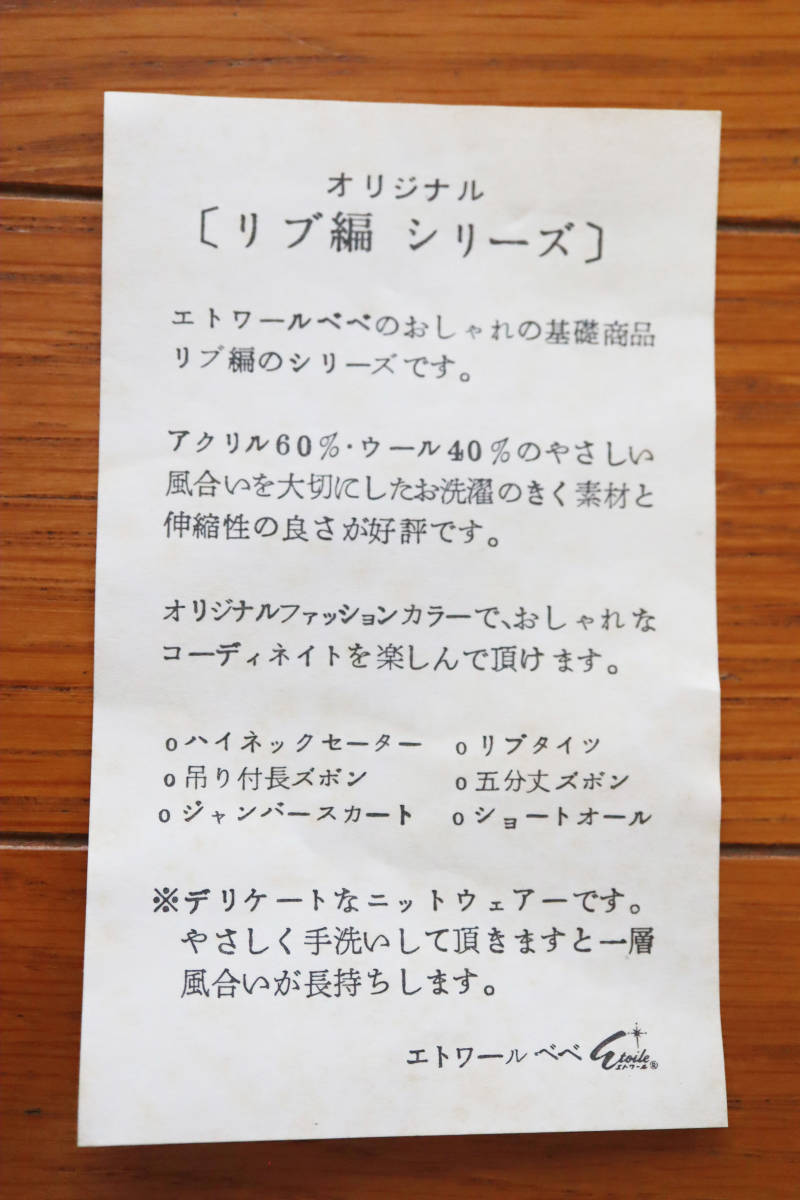 オリジナル
〔リブ編 シリーズ〕
エトワールベベのおしゃれの基礎商品
リブ編のシリーズです。
アクリル60%・ウール40%のやさしい
風合いを大切にしたお洗濯のきく素材と
伸縮性の良さが好評です。
オリジナルファッションカラーで、おしゃれな
コーディネイトを楽しんで頂けます。
oハイネックセーター oリブタイツ
o吊り付長ズボン o五分丈ズボン
oジャンバースカート oショートオール
※デリケートなニットウェアーです。
やさしく手洗いして頂きますと一層
風合いが長持ちします。
エトワール ベベ Etoile
エトワール®